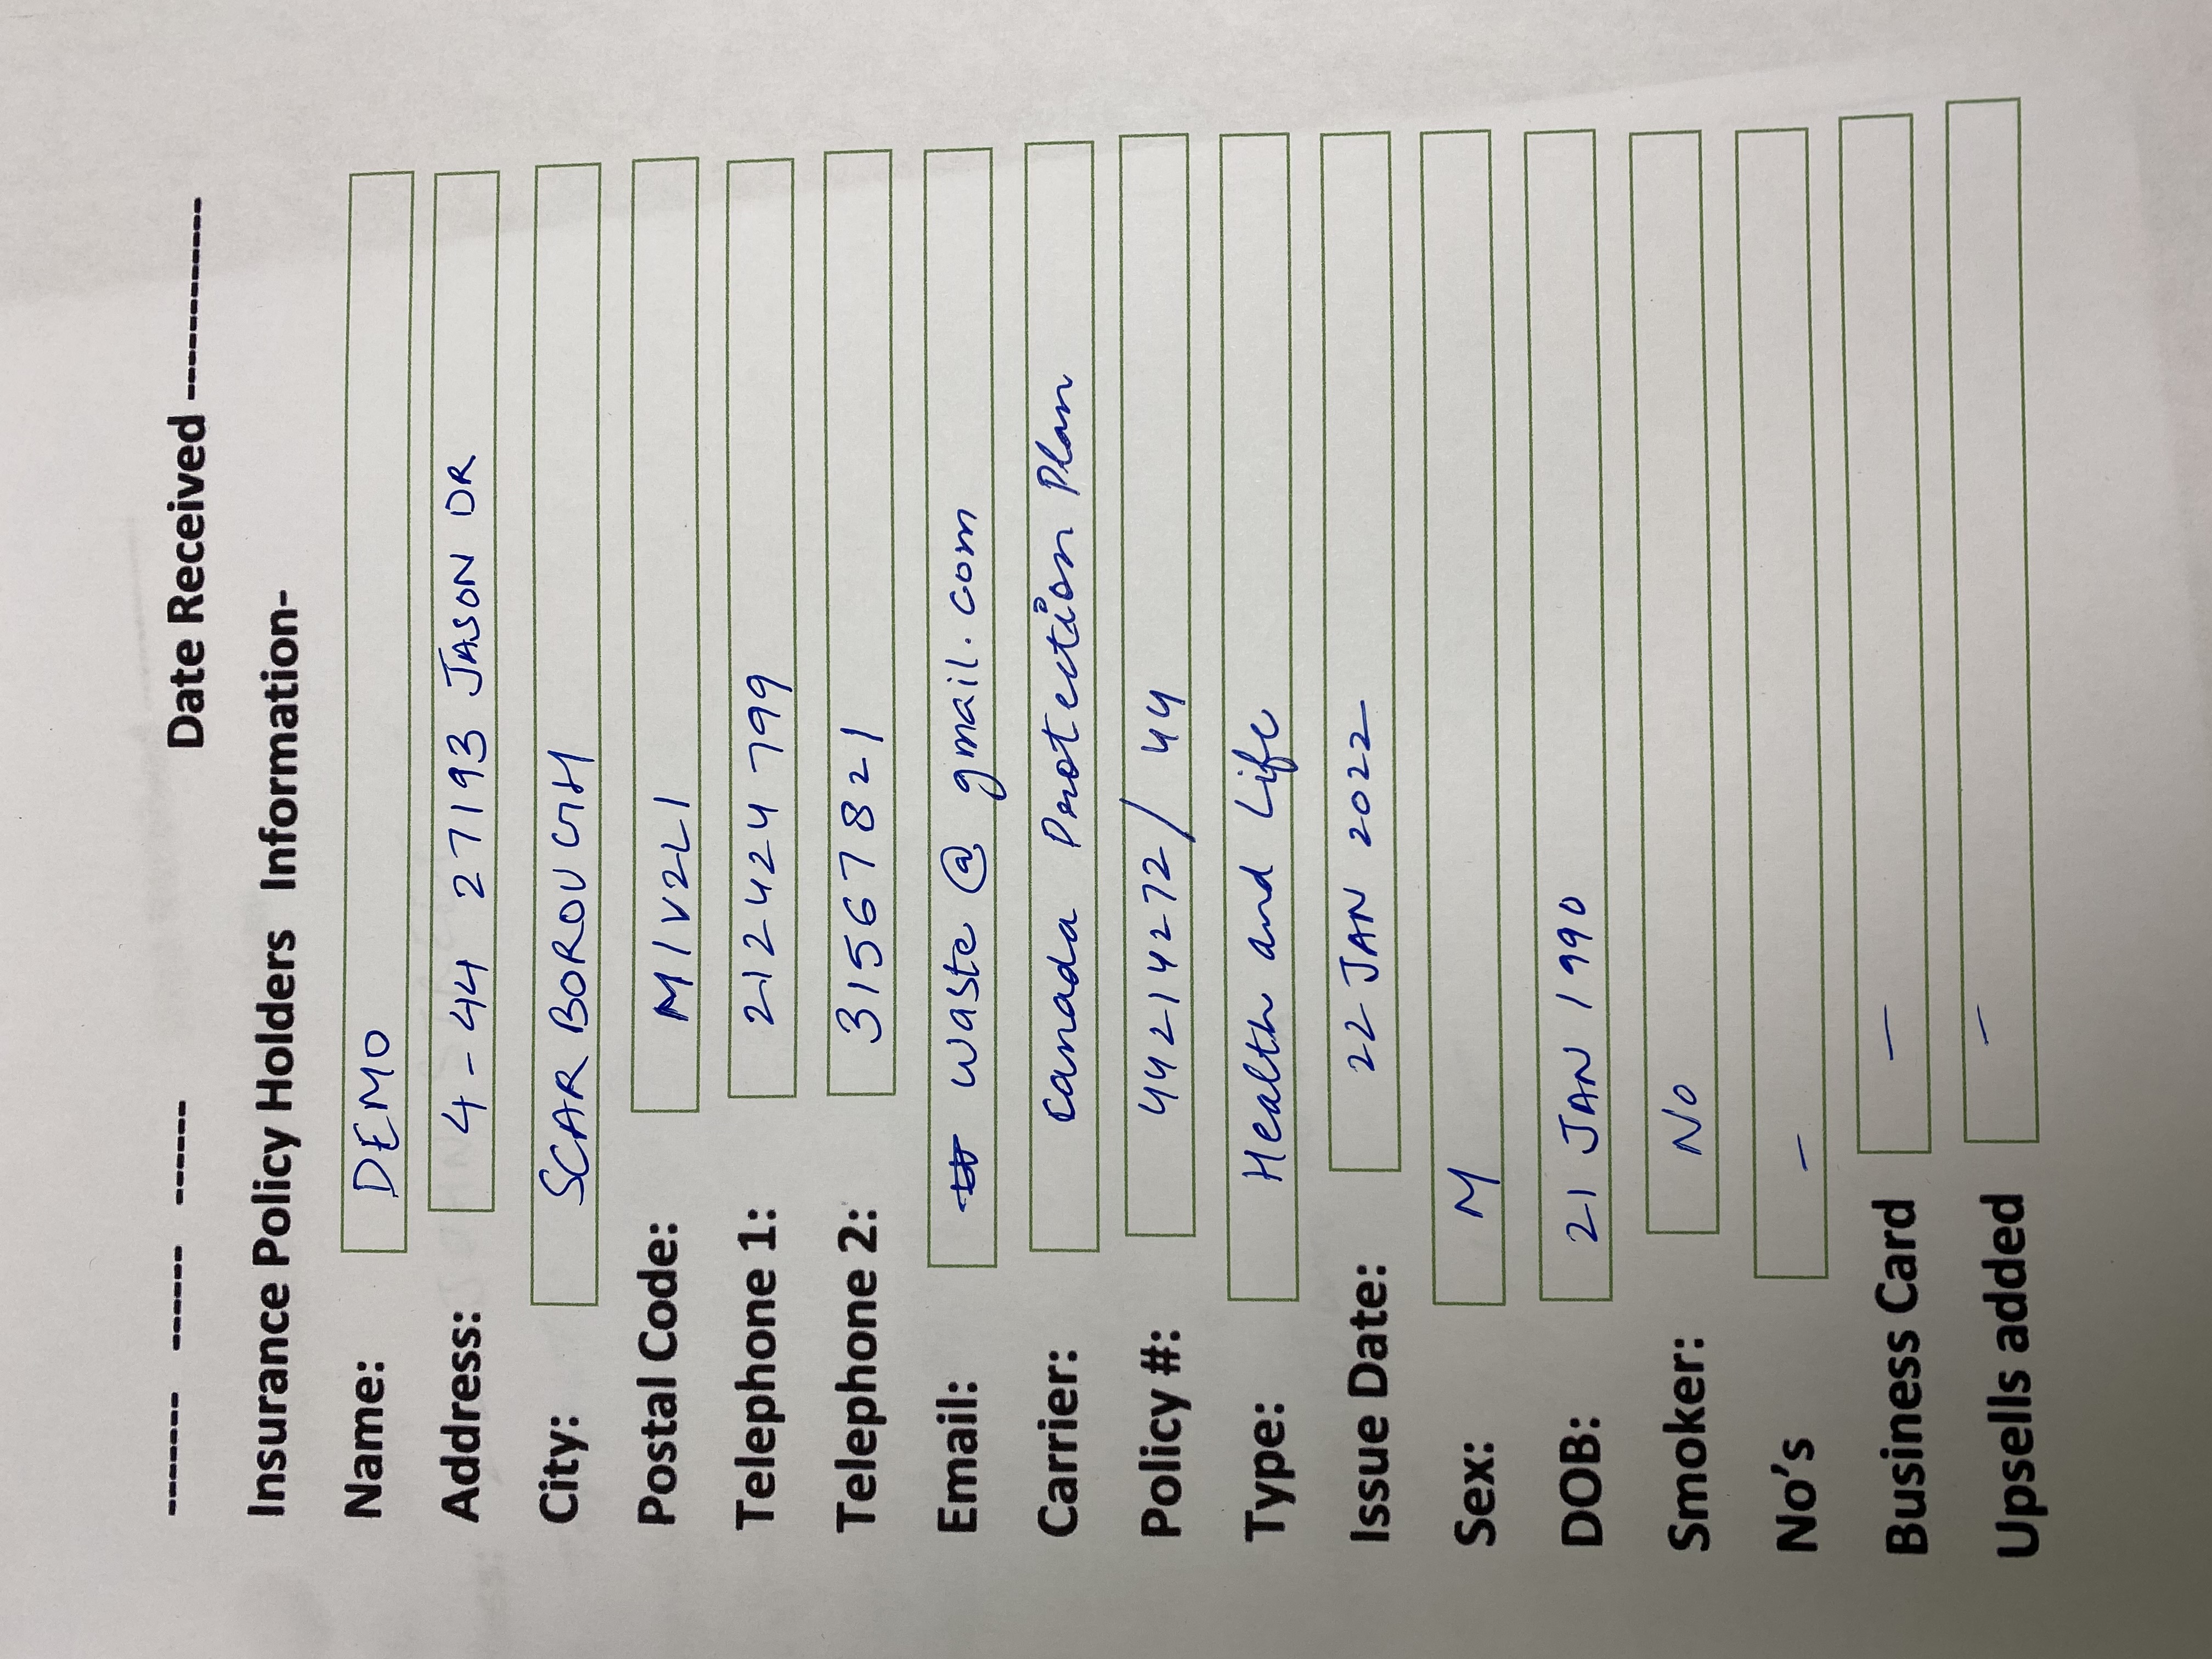 ------- ------ ------ Date Received ------------
Insurance Policy Holders Information-
Name: DEMO
Address: 4-44 27193 JASON DR
City: SCARBOROUGH
Postal Code: M1V2L1
Telephone 1: 212424799
Telephone 2: 31567821
Email: waste@gmail.com
Carrier: Canada Protection Plan
Policy #: 44214272/ 44
Type: Health and Life
Issue Date: 22 JAN 2022
Sex: M
DOB: 21 JAN 1990
Smoker: No
No's –
Business Card –
Upsells added –